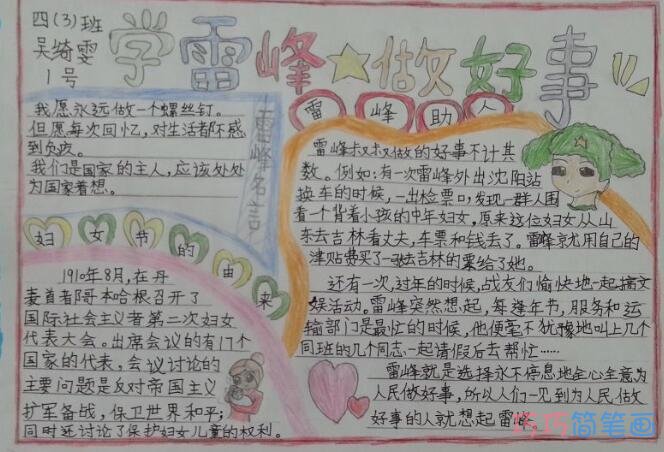 四(3)班
吴绮雯
1号
学雷峰☆做好事
雷锋名言
我愿永远做一个螺丝钉。
但愿每次回忆，对生活都不感
到负疚。
我们是国家的主人，应该处处
为国家着想。
妇女节的由来
1910年8月，在丹
麦首者阿本哈根召开了
国际社会主义者第二次妇女
代表大会。出席会议的有17个
国家的代表，会议讨论的
主要问题是反对帝国主义
扩军备战，保卫世界和平；
同时还讨论了保护妇女儿童的权利。
雷峰助人
雷峰叔叔做的好事不计其
数。例如：有一次雷峰外出沈阳站
换车的时候，一出检票口，发现一群人围
看一个背着小孩的中年妇女，原来这位妇女从山
东去吉林看丈夫，车票和钱丢了。雷峰京尤用自己的
津贴费买了一张去吉林的票给了她。
还有一次，过年的时候，战友们愉快地一起搞文
娱活动。雷峰突然想起，每逢年节，服务和运
输部门是最忙的时候，他便毫不犹豫地叫上几个
同班的几个同志一起请假后去帮忙……
雷峰就是选择永不停息地全心全意为
人民做好事，所以人们一见到为人民做
好事的人就想起雷峰。
巧巧简笔画